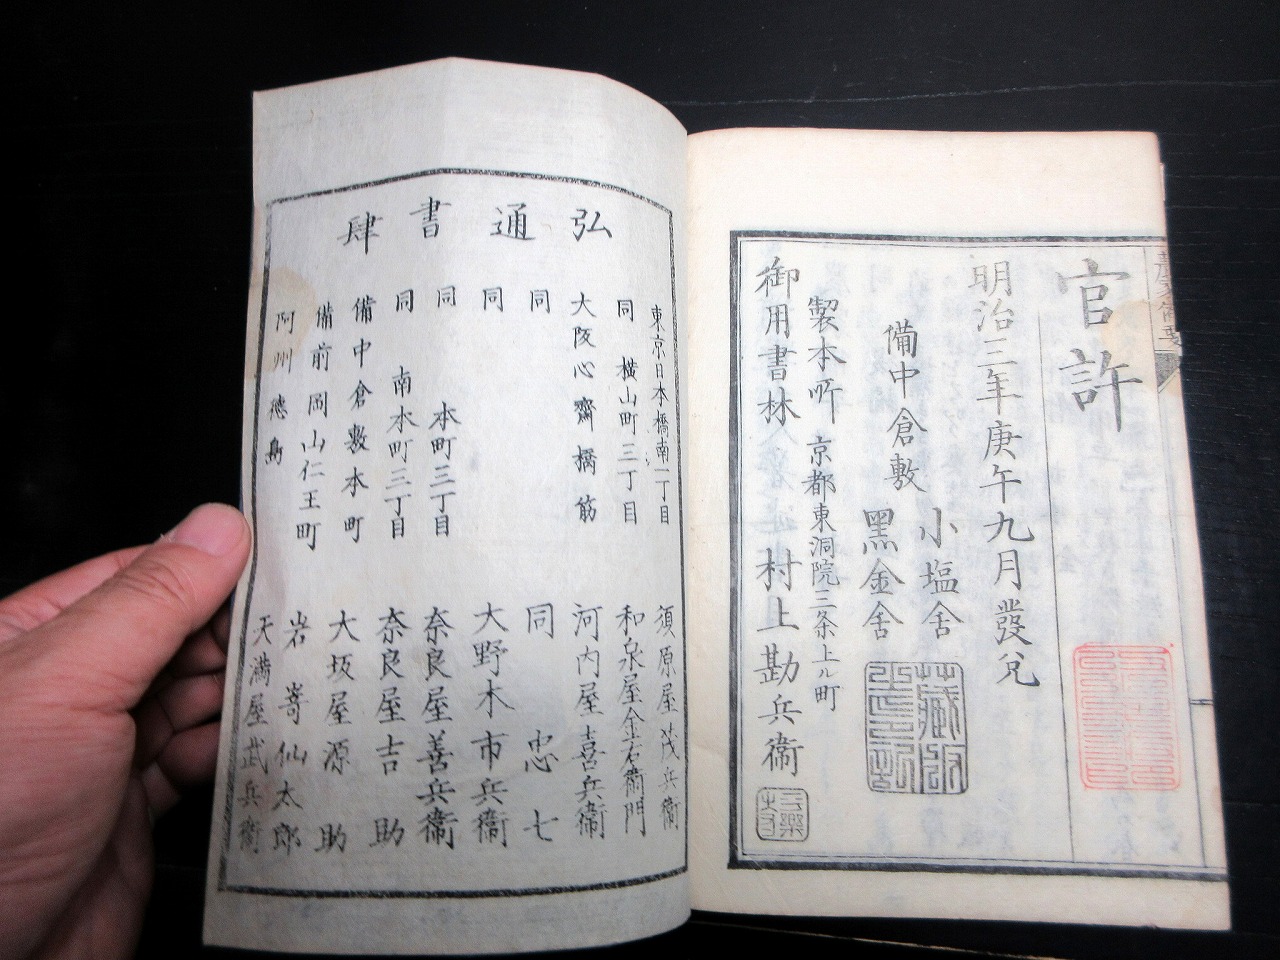 官許
明治三年庚午九月發兌
備中倉敷
小塩舎
黑金舎
藏版
製本所 京都東洞院三条上ル町
御用書林 村上勘兵衞
弘通書肆
東京日本橋南一丁目 須原屋茂兵衞
同 横山町三丁目 和泉屋金右衞門
大阪心齋橋筋 河内屋喜兵衞
同 同 忠七
同 大野木市兵衞
同 本町三丁目 奈良屋善兵衞
同 南本町三丁目 奈良屋吉助
備中倉敷本町 大坂屋源助
備前岡山仁王町 岩嵜仙太郎
阿州德島 天満屋武兵衞